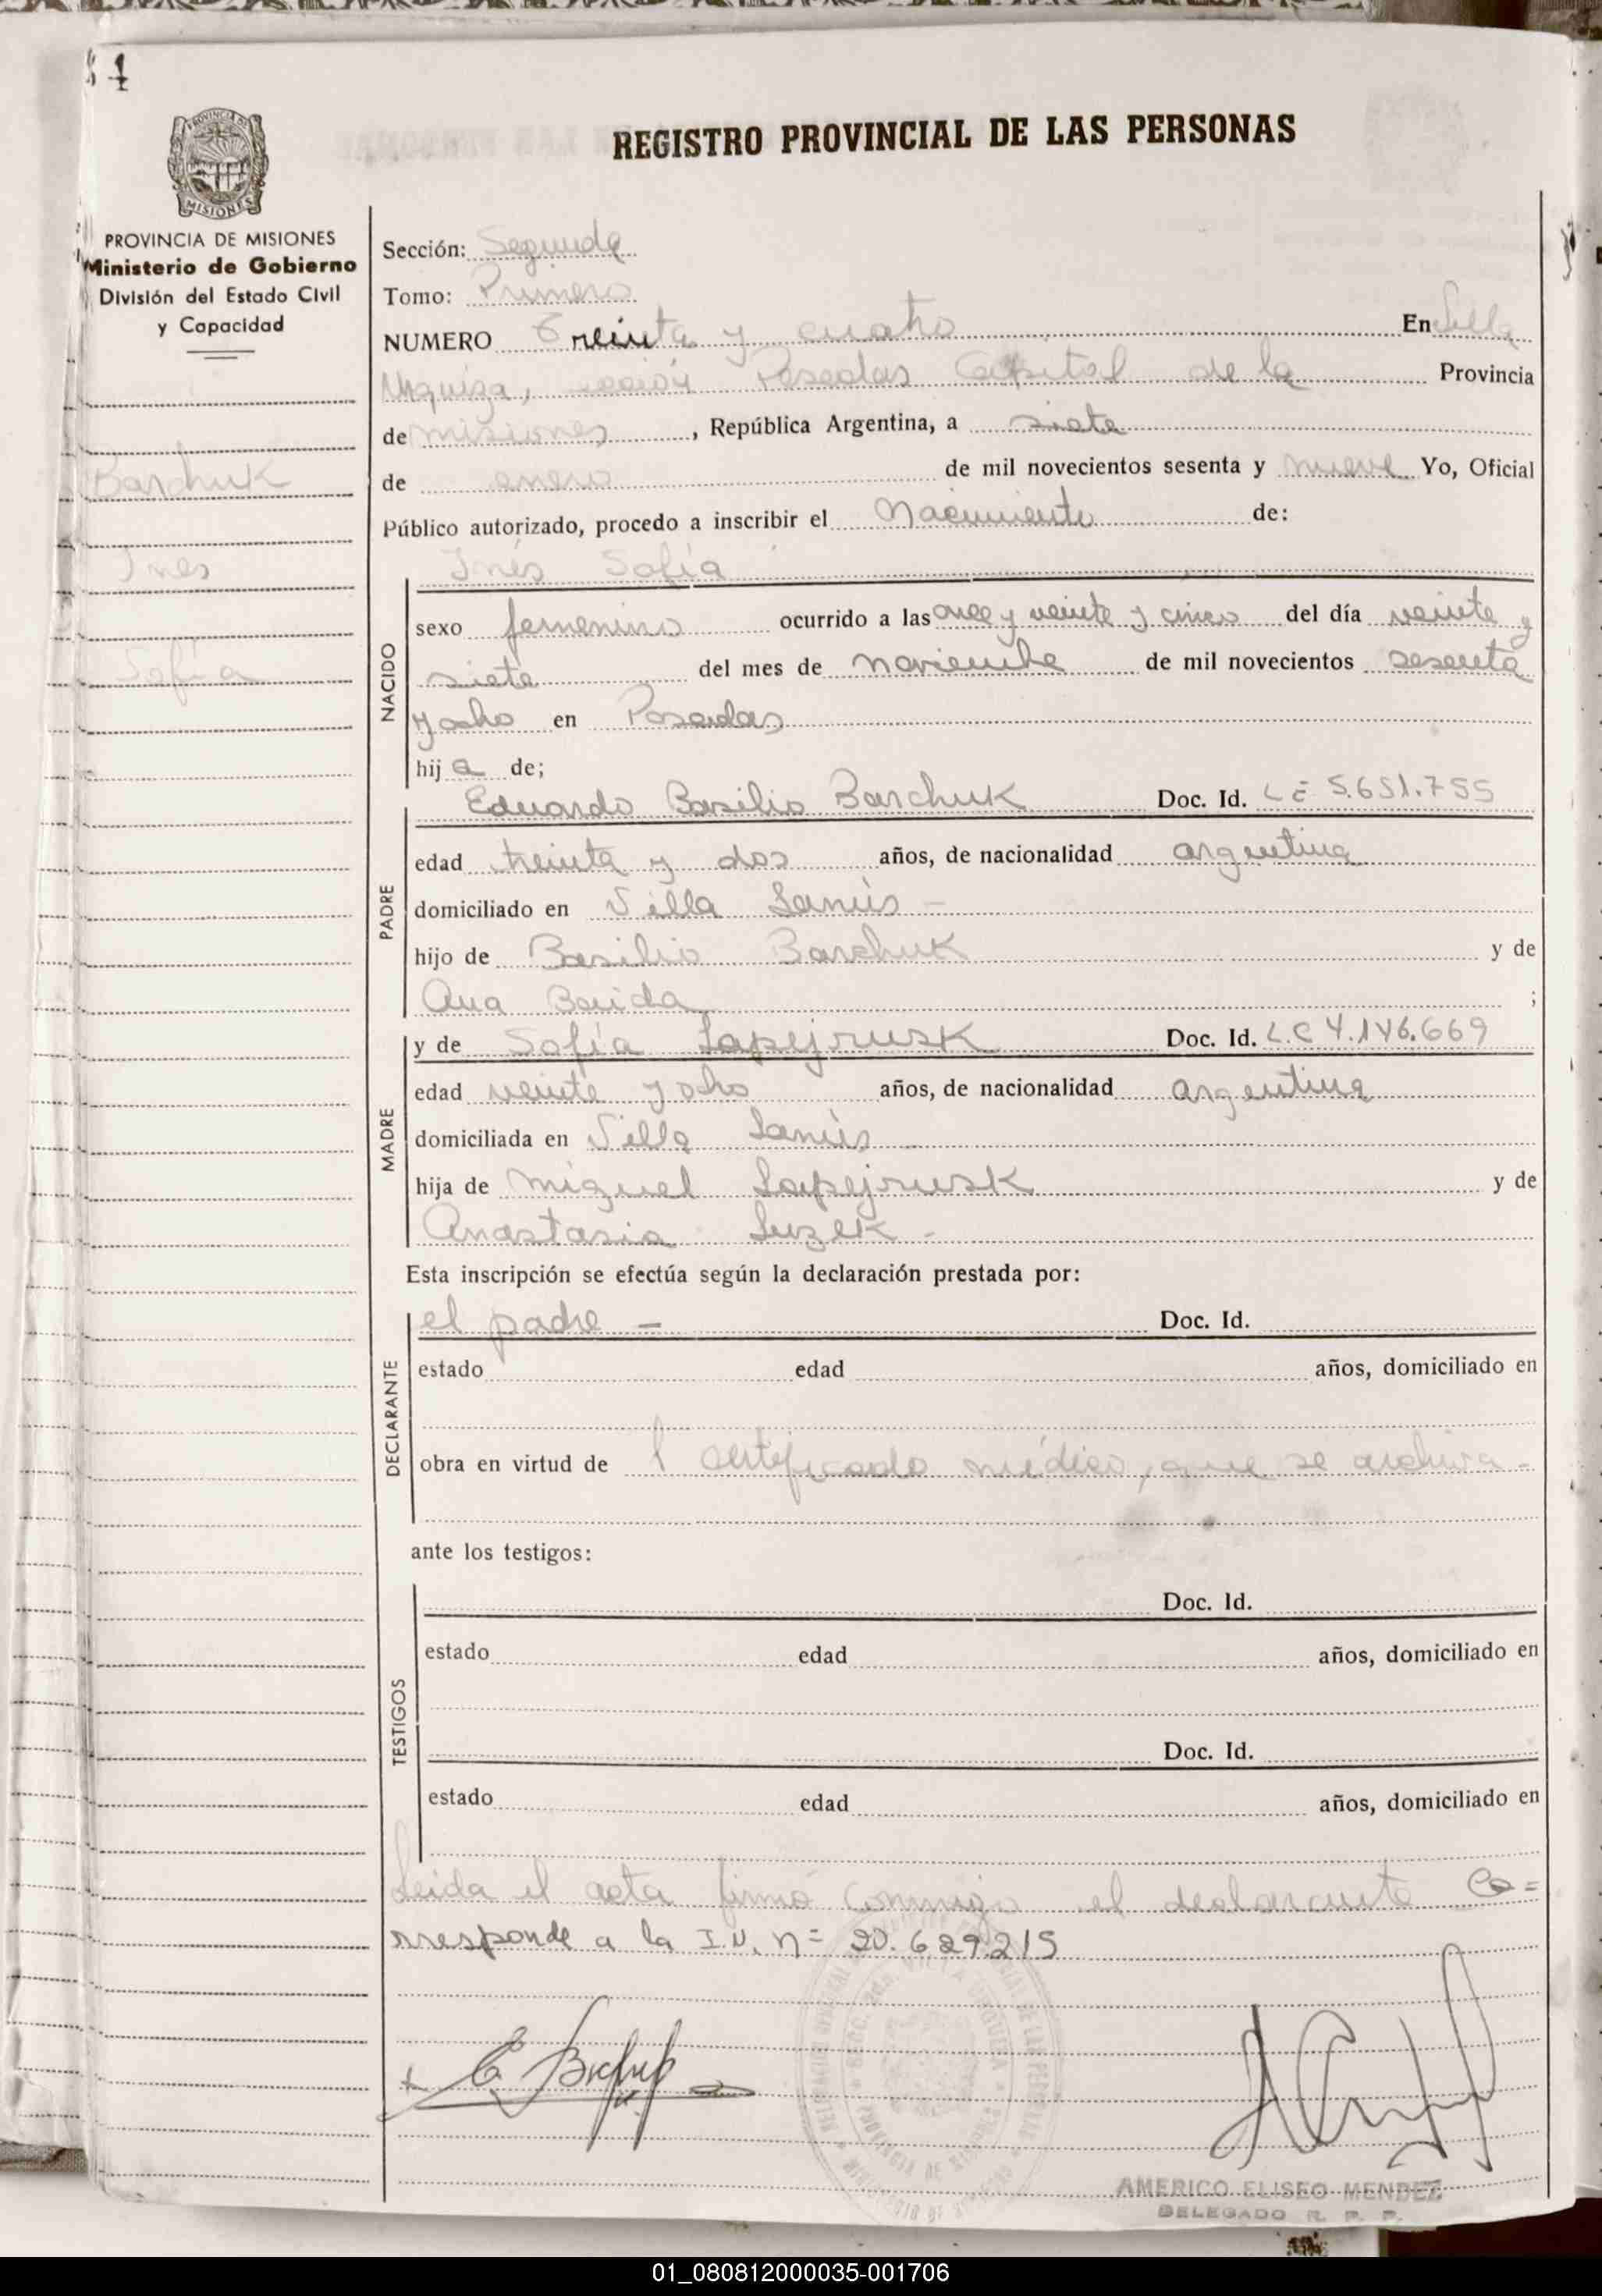 REGISTRO PROVINCIAL DE LAS PERSONAS
MISIONES
PROVINCIA DE MISIONES
Ministerio de Gobierno
División del Estado Civil
y Capacidad
Barchuk
Inés
Sofía
Sección: Segunda
Tomo: Primero
NUMERO Treinta y cuatro En Villa
Urquiza, Posadas Capital de la Provincia
de misiones, República Argentina, a siete
de enero de mil novecientos sesenta y nueve Yo, Oficial
Público autorizado, procedo a inscribir el Nacimiento de:
Inés Sofía
NACIDO
sexo femenino ocurrido a las once y veinte y cinco del día veinte y
siete del mes de noviembre de mil novecientos sesenta
y ocho en Posadas
hija de;
PADRE
Eduardo Basilio Barchuk Doc. Id. L E 5.651.755
edad treinta y dos años, de nacionalidad argentina
domiciliado en Villa Lanús -
hijo de Basilio Barchuk y de
Ana ;
MADRE
y de Sofía Lapejrusk Doc. Id. L.C 4.146.669
edad veinte y ocho años, de nacionalidad argentina
domiciliada en Villa Lanús -
hija de Miguel Lapejrusk y de
Anastasia Luzek -
Esta inscripción se efectúa según la declaración prestada por:
DECLARANTE
el padre - Doc. Id.
estado edad años, domiciliado en
obra en virtud de 1 certificado médico, que se archiva -
ante los testigos:
TESTIGOS
Doc. Id.
estado edad años, domiciliado en
Doc. Id.
estado edad años, domiciliado en
Leida el acta firmó conmigo el declarante Co=
rresponde a la I.D. nº 20.629.215
AMERICO ELISEO MENDEZ
DELEGADO R. P. P.
01_080812000035-001706